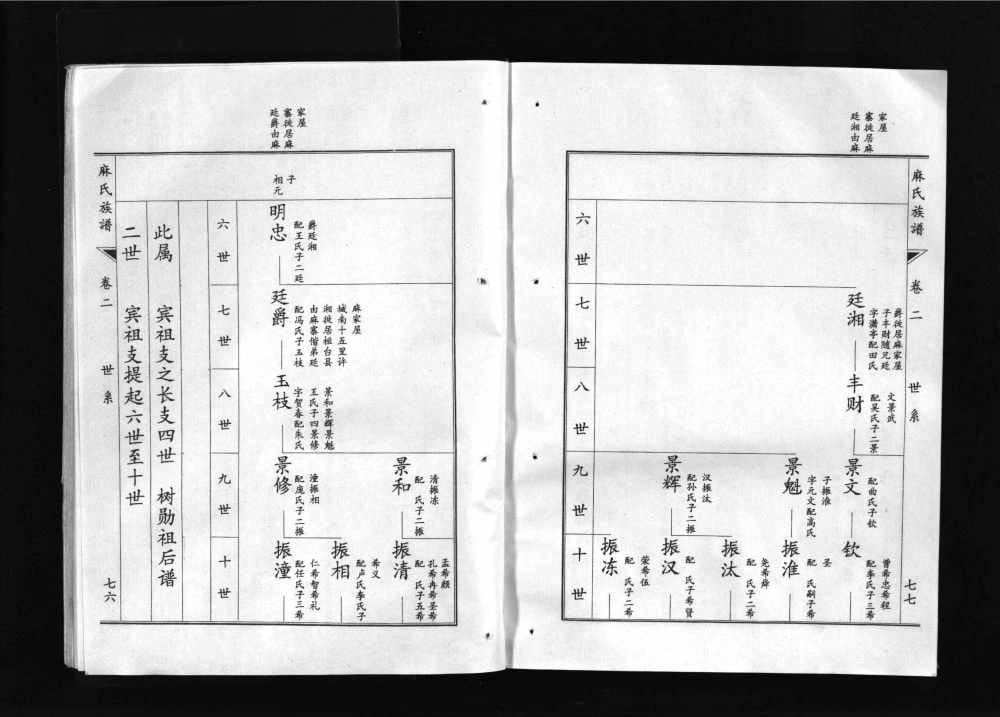 麻氏族谱
卷二
世系
七六
二世
宾祖支提起六世至十世
此属
宾祖支之长支四世
树勋祖后谱
六世
七世
八世
九世
十世
廷爵由麻
寨徙居麻
家屋
相元
子
明忠
配王氏子二廷
爵廷湘
廷爵
配冯氏子玉枝
由麻寨偕弟廷
湘徙居桓台县
城南十五里许
麻家屋
玉枝
字贺春配朱氏
王氏子四景修
景和景辉景魁
景修
配庞氏子二振
潼振相
景和
配氏子二振
清振冻
振潼
配任氏子三希
仁希智希礼
振相
配卢氏李氏子
希义
振清
配氏子五希
孔希冉希圣希
孟希颜
廷湘由麻
寨徙居麻
家屋
麻氏族谱
卷二
世系
七七
六世
七世
八世
九世
十世
廷湘
字潇亭配田氏
子丰财随兄廷
爵徙居麻家屋
丰财
配吴氏子二景
文景武
景辉
配孙氏子二振
汉振汰
景魁
字元文配高氏
子振淮
景文
配曲氏子钦
振冻
配氏子二希
荣希伍
振汉
配氏子希贤
振汰
配氏子二希
尧希舜
振淮
配氏嗣子希
圣
钦
配李氏子三希
曾希忠希程